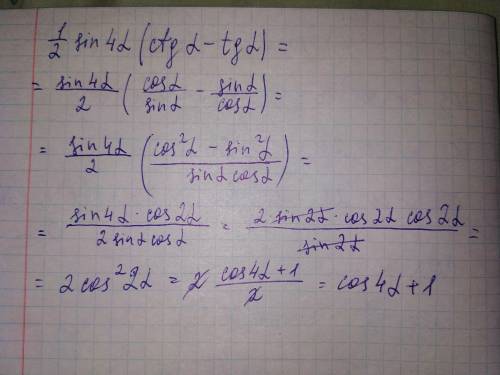 1/2 sin4α (ctg α − tg α) =
= sin4α/2 (cosα/sinα − sinα/cosα) =
= sin4α/2 (cos²α − sin²α / sinα cosα) =
= sin4α · cos2α / 2 sinα cosα = 2 · sin2α · cos2α cos2α / sin2α =
= 2 cos²2α = 2 cos4α + 1 / 2 = cos4α + 1